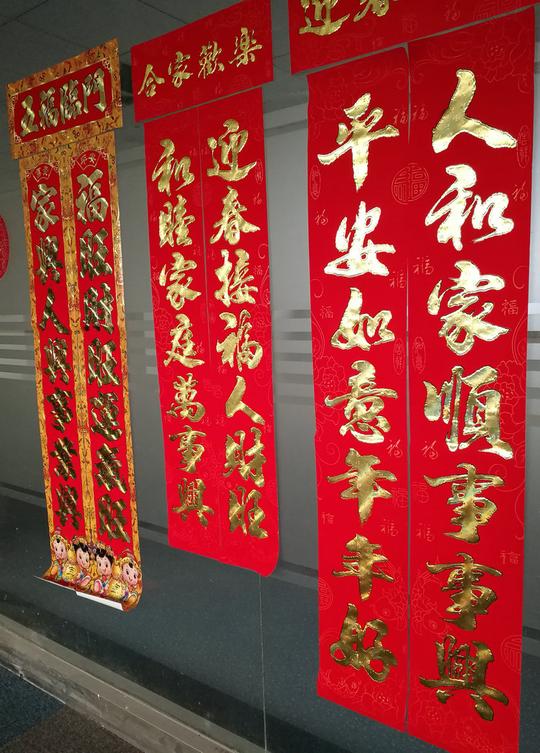 五福臨門
福旺財旺運氣旺
家興人興事業興
合家歡樂
迎春接福人財旺
和睦家庭萬事興
迎春
人和家順事事興
平安如意年年好